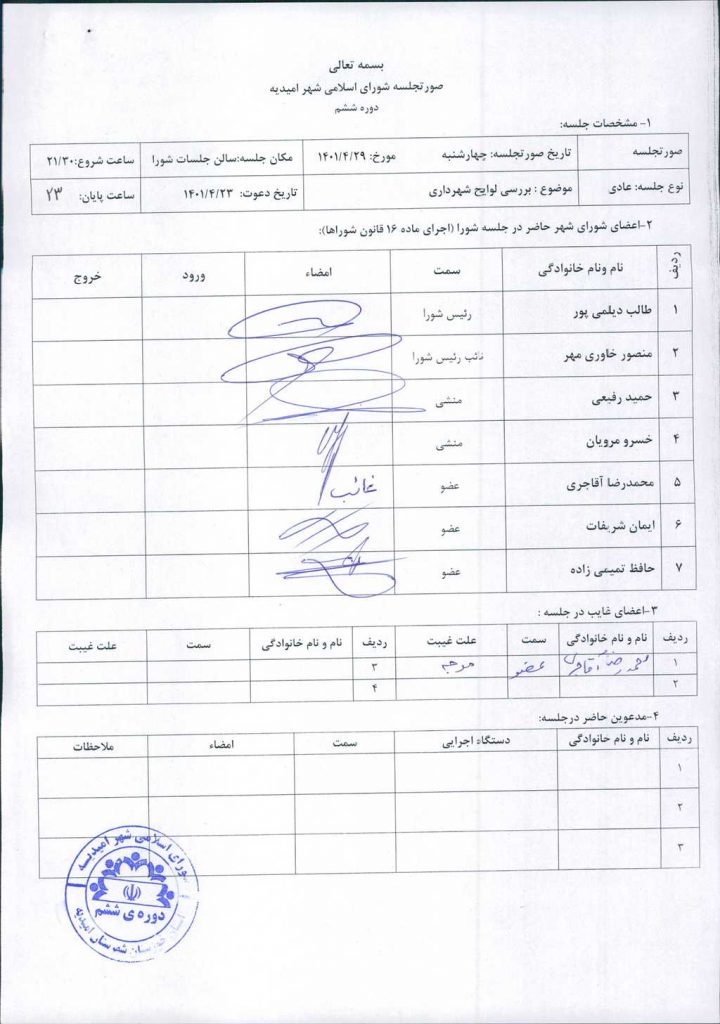 بسمه تعالی
صورتجلسه شورای اسلامی شهر امیدیه
دوره ششم
۱- مشخصات جلسه:
صورتجلسه تاریخ صورتجلسه: چهارشنبه مورخ: ۱۴۰۱/۴/۲۹ مکان جلسه:سالن جلسات شورا ساعت شروع:۲۱/۳۰
نوع جلسه: عادی موضوع : بررسی لوایح شهرداری تاریخ دعوت: ۱۴۰۱/۴/۲۳ ساعت پایان: ۲۳
۲-اعضای شورای شهر حاضر در جلسه شورا (اجرای ماده ۱۶ قانون شوراها):
ردیف نام ونام خانوادگی سمت امضاء ورود خروج
۱ طالب دیلمی پور رئیس شورا
۲ منصور خاوری مهر نائب رئیس شورا
۳ حمید رفیعی منشی
۴ خسرو مرویان منشی
۵ محمدرضا آقاجری عضو غائب
۶ ایمان شریفات عضو
۷ حافظ تمیمی زاده عضو
۳-اعضای غایب در جلسه :
ردیف نام و نام خانوادگی سمت علت غیبت ردیف نام و نام خانوادگی سمت علت غیبت
۱ محمدرضا آقاجری عضو موجه ۳
۲ ۴
۴-مدعوین حاضر درجلسه:
ردیف نام و نام خانوادگی دستگاه اجرایی سمت امضاء ملاحظات
۱
۲
۳
شورای اسلامی شهر امیدیه
دوره ی ششم
شهرستان امیدیه